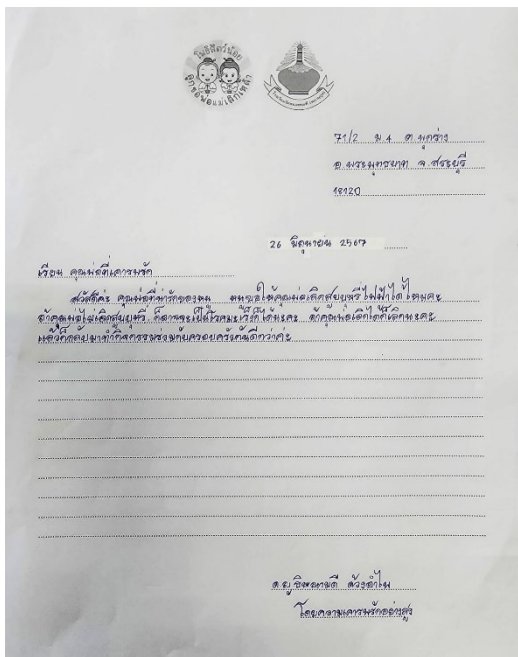 โพธิสัตว์น้อย
ลูกขอพ่อแม่เลิกเหล้า
71/2 ม.4 ต.พุกร่าง
อ.พระพุทธบาท จ.สระบุรี
18120
26 มิถุนายน 2567
เรียน คุณพ่อที่เคารพรัก
สวัสดีค่ะ คุณพ่อที่น่ารักของหนู หนูขอให้คุณพ่อเลิกสูบบุหรี่ไฟฟ้าได้ไหมคะ
ถ้าคุณพ่อไม่เลิกสูบบุหรี่ ก็อาจจะเป็นโรคมะเร็งก็ได้นะคะ ถ้าคุณพ่อเลิกได้ก็เลิกนะคะ
แล้วก็กลับมาทำกิจกรรมร่วมกับครอบครัวกันดีกว่าค่ะ
ด.ญ.
โดยความเคารพรักอย่างสูง